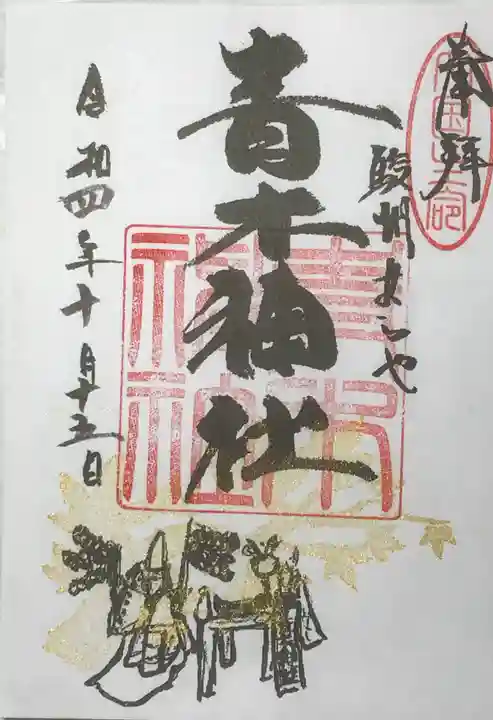 奉拝
駿州まりや
青木神社
令和四年十月十五日
青木神社